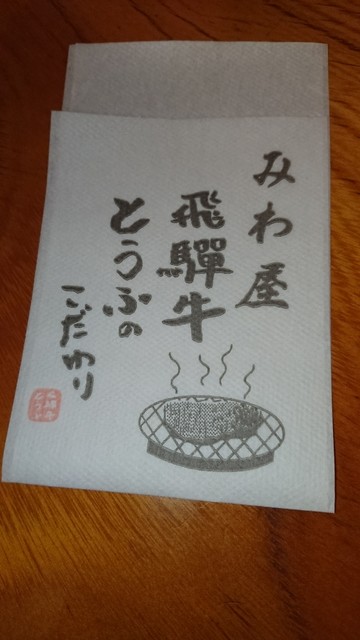 みわ屋
飛騨牛
とうふの
こだわり